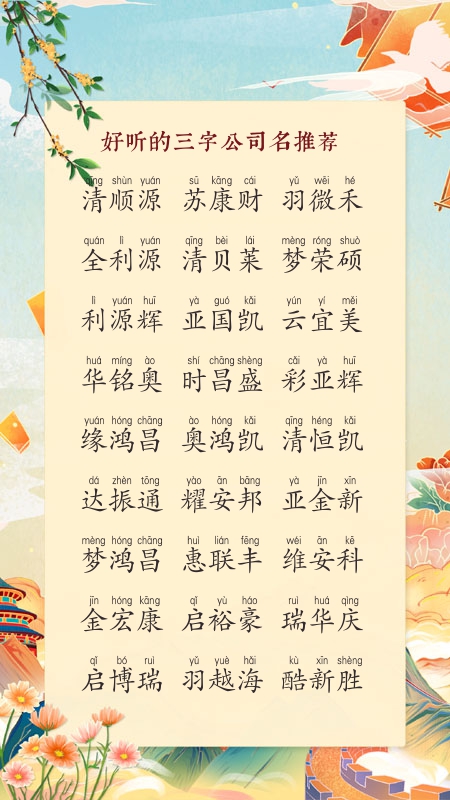 好听的三字公司名推荐
qīng shùn yuán sū kāng cái yǔ wēi hé
清顺源 苏康财 羽微禾
quán lì yuán qīng bèi lái mèng róng shuò
全利源 清贝莱 梦荣硕
lì yuán huī yà guó kǎi yún yí měi
利源辉 亚国凯 云宜美
huá míng ào shí chāng shèng cǎi yà huī
华铭奥 时昌盛 彩亚辉
yuán hóng chāng ào hóng kǎi qīng héng kǎi
缘鸿昌 奥鸿凯 清恒凯
dá zhèn tōng yào ān bāng yà jīn xīn
达振通 耀安邦 亚金新
mèng hóng chāng huì lián fēng wéi ān kē
梦鸿昌 惠联丰 维安科
jīn hóng kāng qǐ yù háo ruì huá qìng
金宏康 启裕豪 瑞华庆
qǐ bó ruì yǔ yuè hǎi kù xīn shèng
启博瑞 羽越海 酷新胜